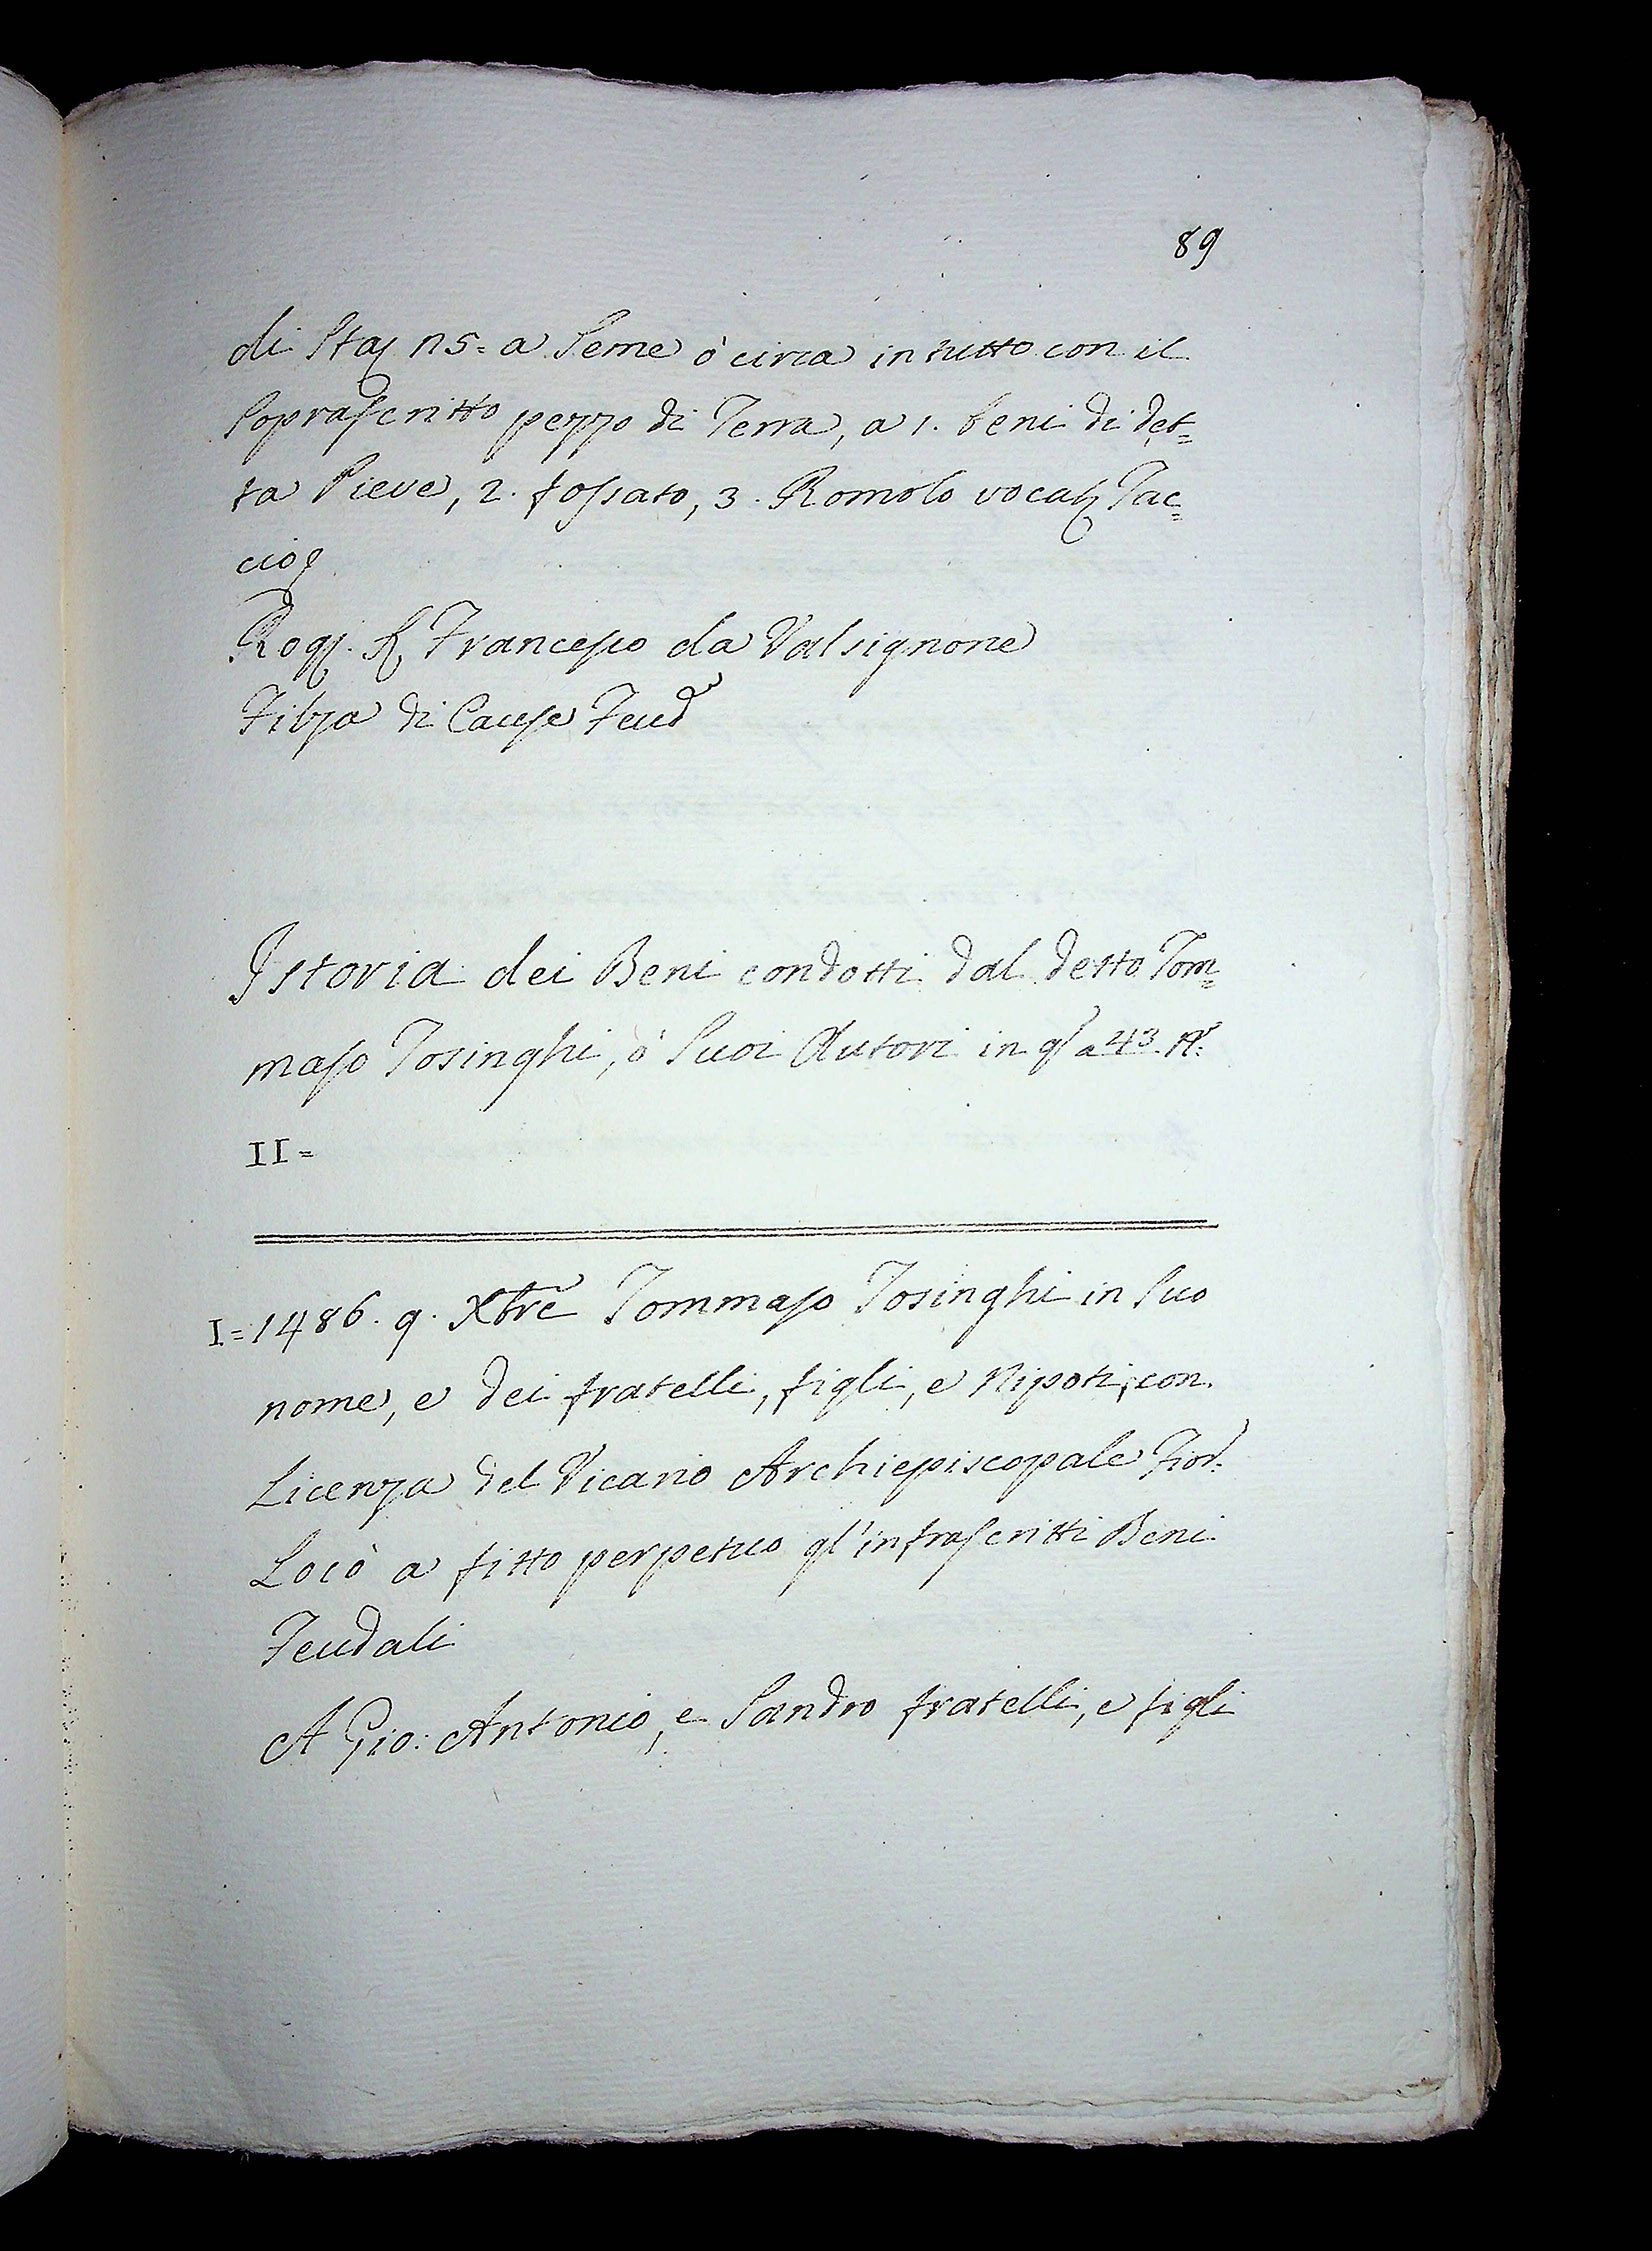 89
di Staj n5= a Seme ò circa in tutto con il
Soprascritto pezzo di Terra, a 1. beni di det=
ta Pieve, 2. fossato, 3. Romolo vocat Tac=
cio
Rog. Francesco da Valsignone
Filza di Cause Feud
Istoria dei Beni condotti dal detto Tom=
maso Tosinghi, ò Suoi Autori in q a 43. N.
II=
I=1486. 9. Xbre Tommaso Tosinghi in Suo
nome, e dei fratelli, figli, e Nipoti, con
Licenza del Vicario Archiepiscopale Fior.
Locò a fitto perpetuo gl'infrascritti Beni
Feudali
A Gio: Antonio, e Sandro fratelli, e figli